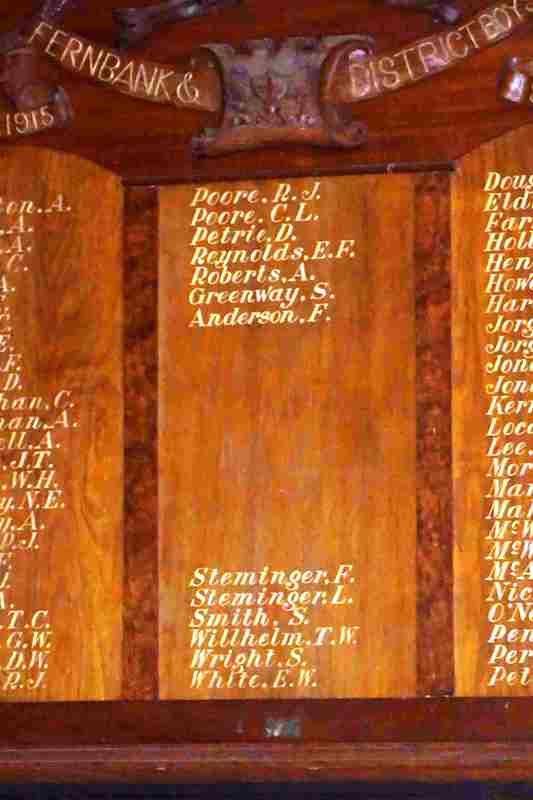 FERNBANK & DISTRICT BOYS
1915
A.
.A.
.A.
C.
A.
E.
F.
D.
C.
A.
A.
J.T.
W.H.
N.E.
A.
D.J.
T.C.
G.W.
D.W.
R.J.
Poore. R. J.
Poore. C. L.
Petrie. D.
Reynolds. E. F.
Roberts. A.
Greenway. S.
Anderson. F.
Steminger. F.
Steminger. L.
Smith. S.
Willhelm. T. W.
Wright. S.
White. E. W.
Doug
Eld
Far
Holl
Hen
Howe
Har
Jorg
Jorg
Jon
Jon
Kerr
Loca
Lee.
Mor
Mar
Mal
McW
McW
McA
Nic
O'Ne
Pen
Per
Pet